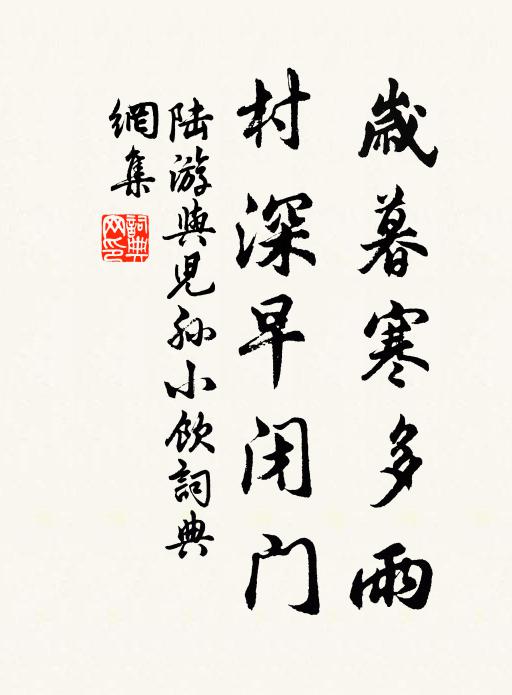 歲暮寒多雨
村深早閉門
陸游與兒孫小飲詞典
網集
詞典網印